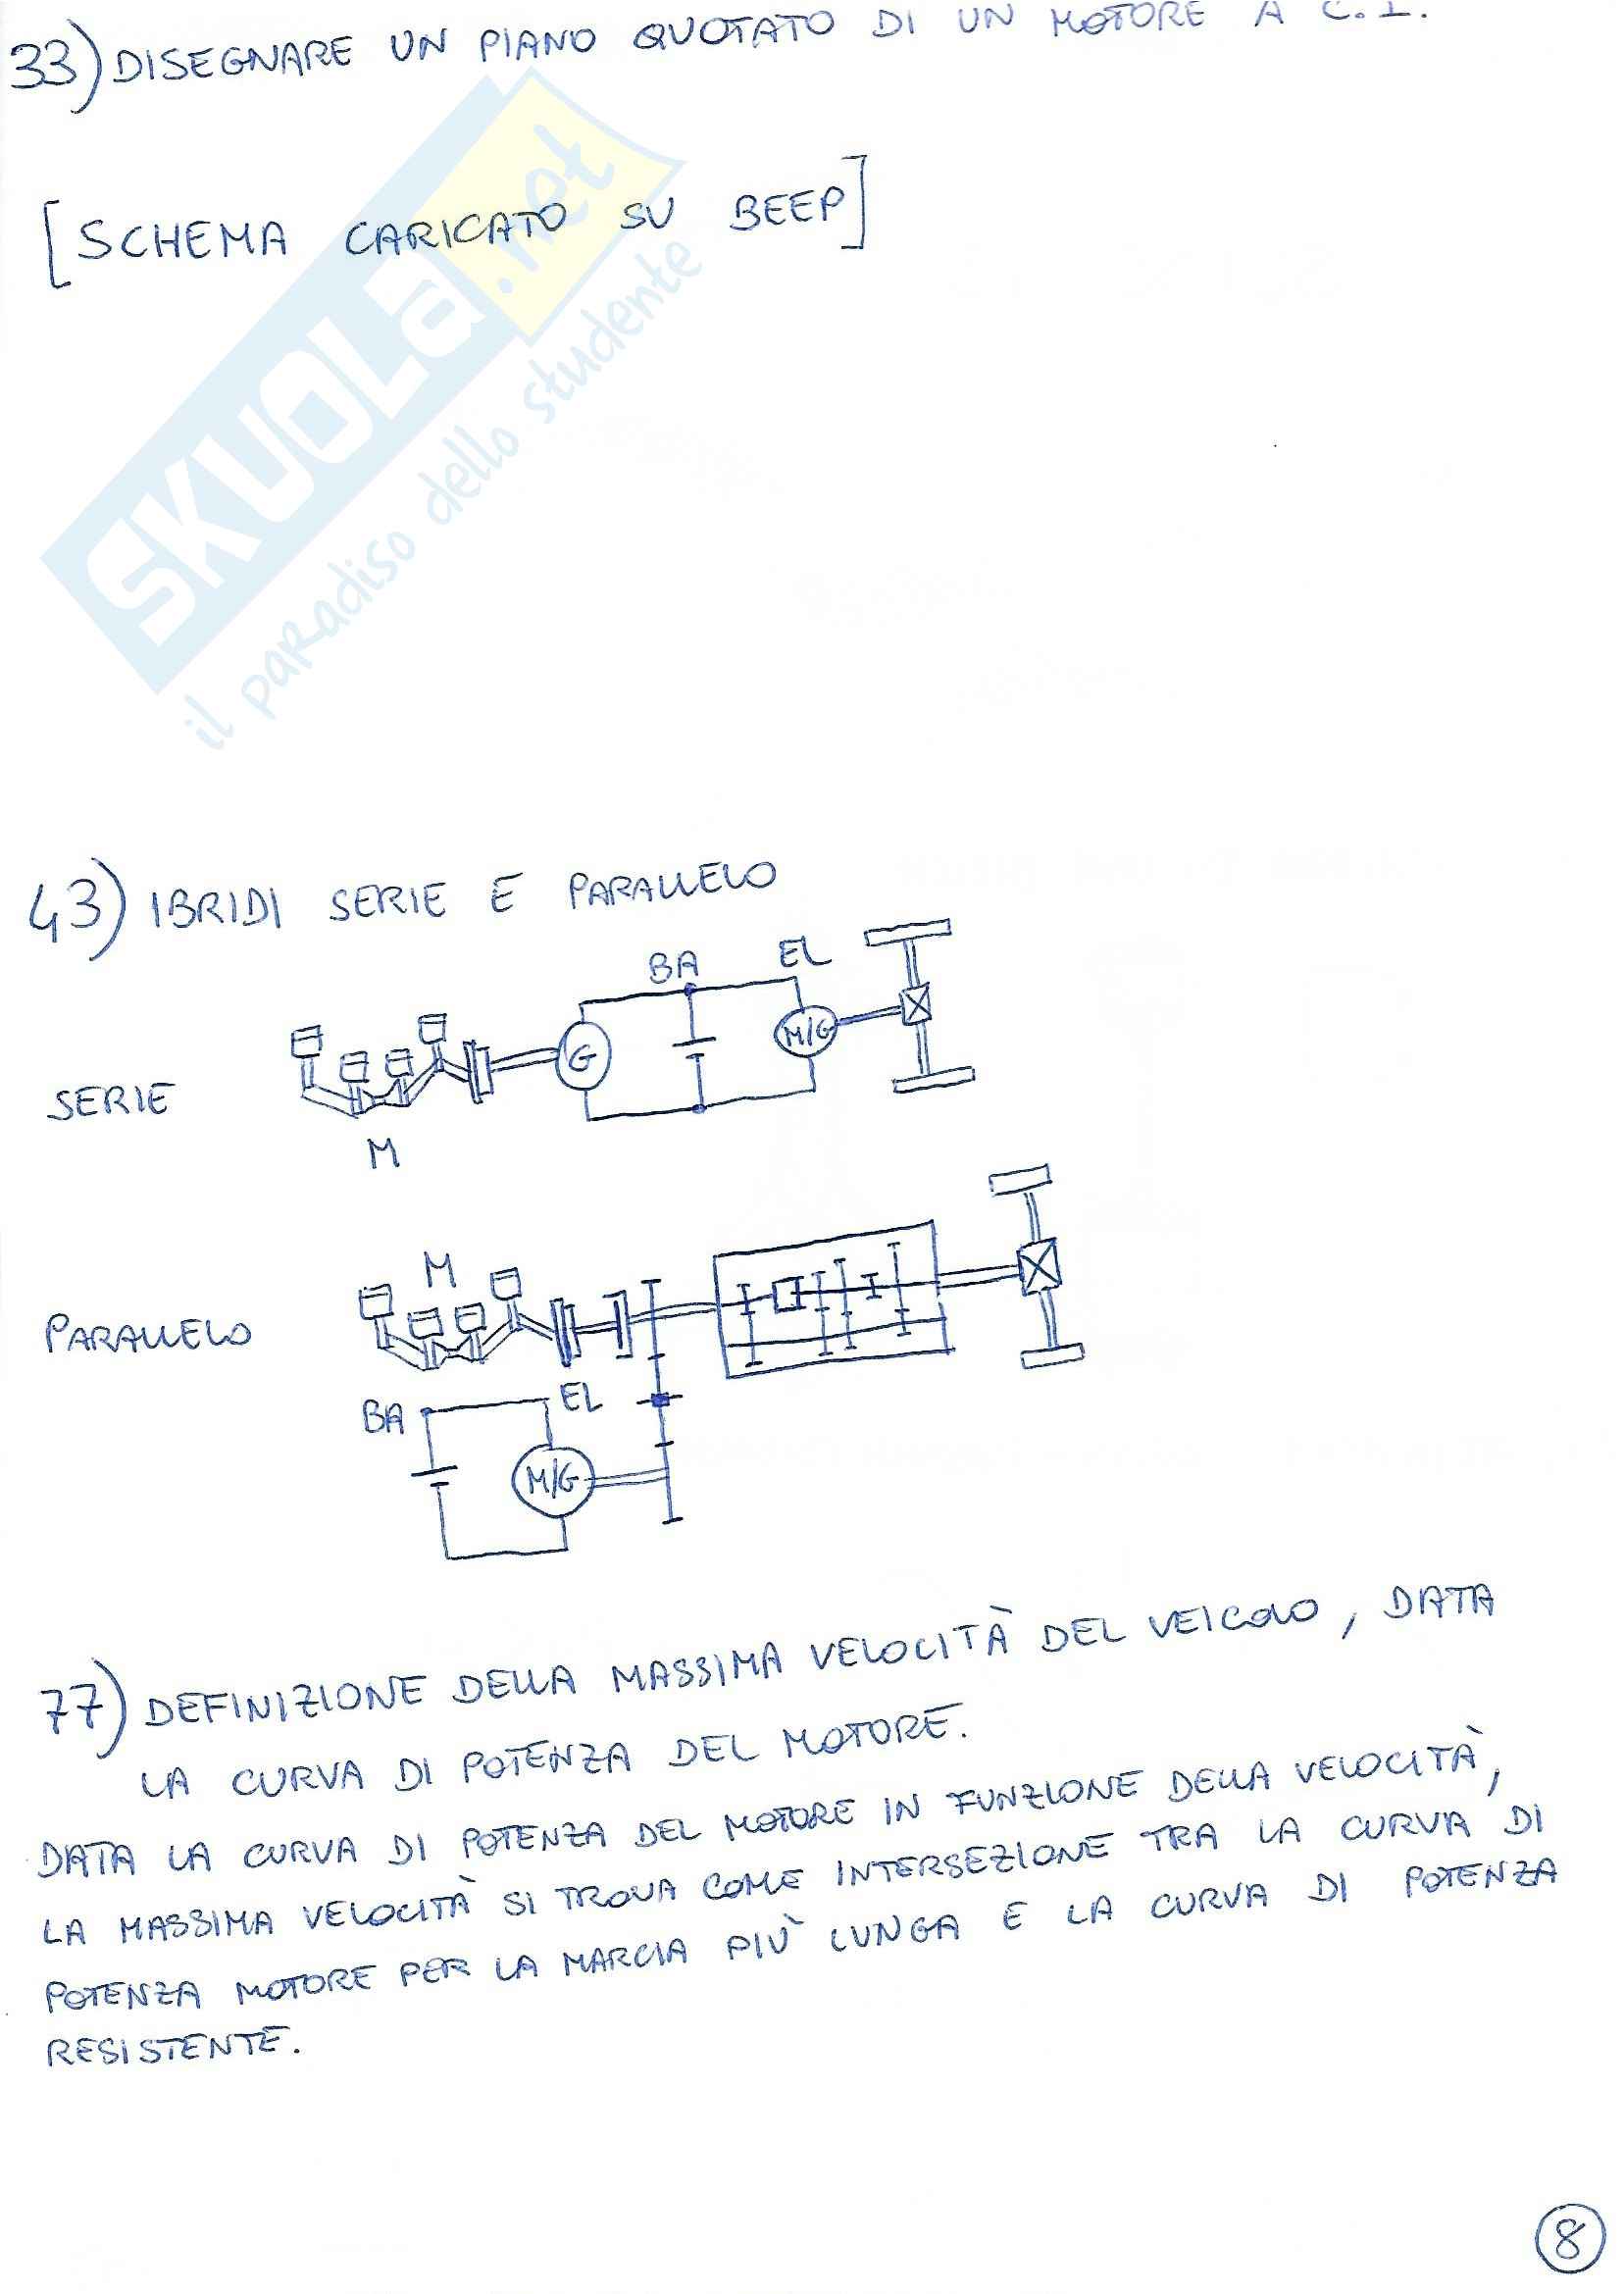 33) DISEGNARE UN PIANO QUOTATO DI UN MOTORE A C.I.
[SCHEMA CARICATO SU BEEP]
SKUOLa.net
il paradiso dello studente
43) IBRIDI SERIE E PARALLELO
BA EL
G M/G
SERIE
M
M
PARALLELO
BA EL
M/G
77) DEFINIZIONE DELLA MASSIMA VELOCITÀ DEL VEICOLO, DATA
LA CURVA DI POTENZA DEL MOTORE.
DATA LA CURVA DI POTENZA DEL MOTORE IN FUNZIONE DELLA VELOCITÀ,
LA MASSIMA VELOCITÀ SI TROVA COME INTERSEZIONE TRA LA CURVA DI
POTENZA MOTORE PER LA MARCIA PIÙ LUNGA E LA CURVA DI POTENZA
RESISTENTE.
8